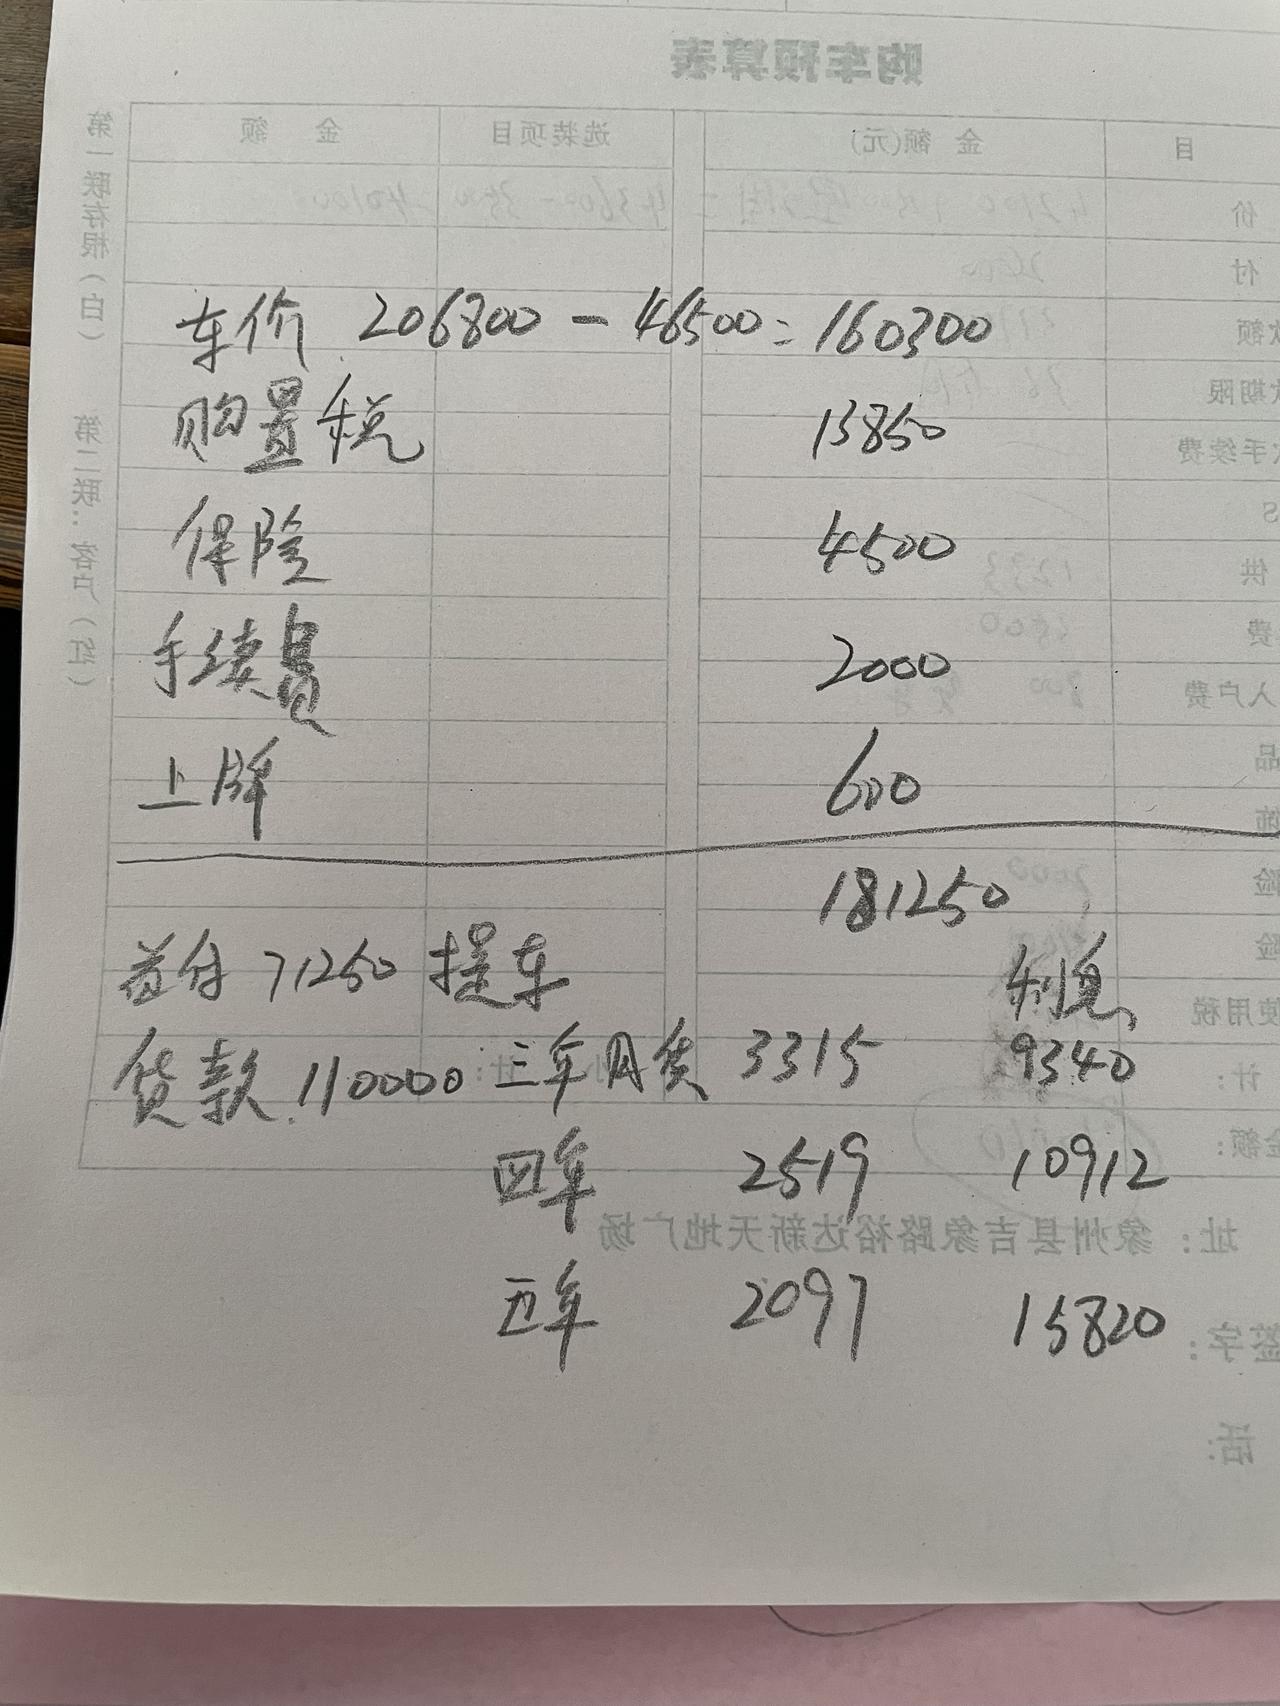 购车预算表
目 金 额(元) 选装项目 金 额
第一联存根(白) 第二联:客户(红)
价
付
款额
款期限
手续费
S
供
费
入户费
品
饰
险
险
使用税
计:
金额:
车价 206800 - 46500 = 160300
购置税 13850
保险 4500
手续费 2000
上牌 600
181250
首付 71250 提车
利息
贷款 110000 三年月贷 3315 9340
四年 2519 10912
五年 2097 15820
址:象州县吉象路裕达新天地广场
签字:
话: